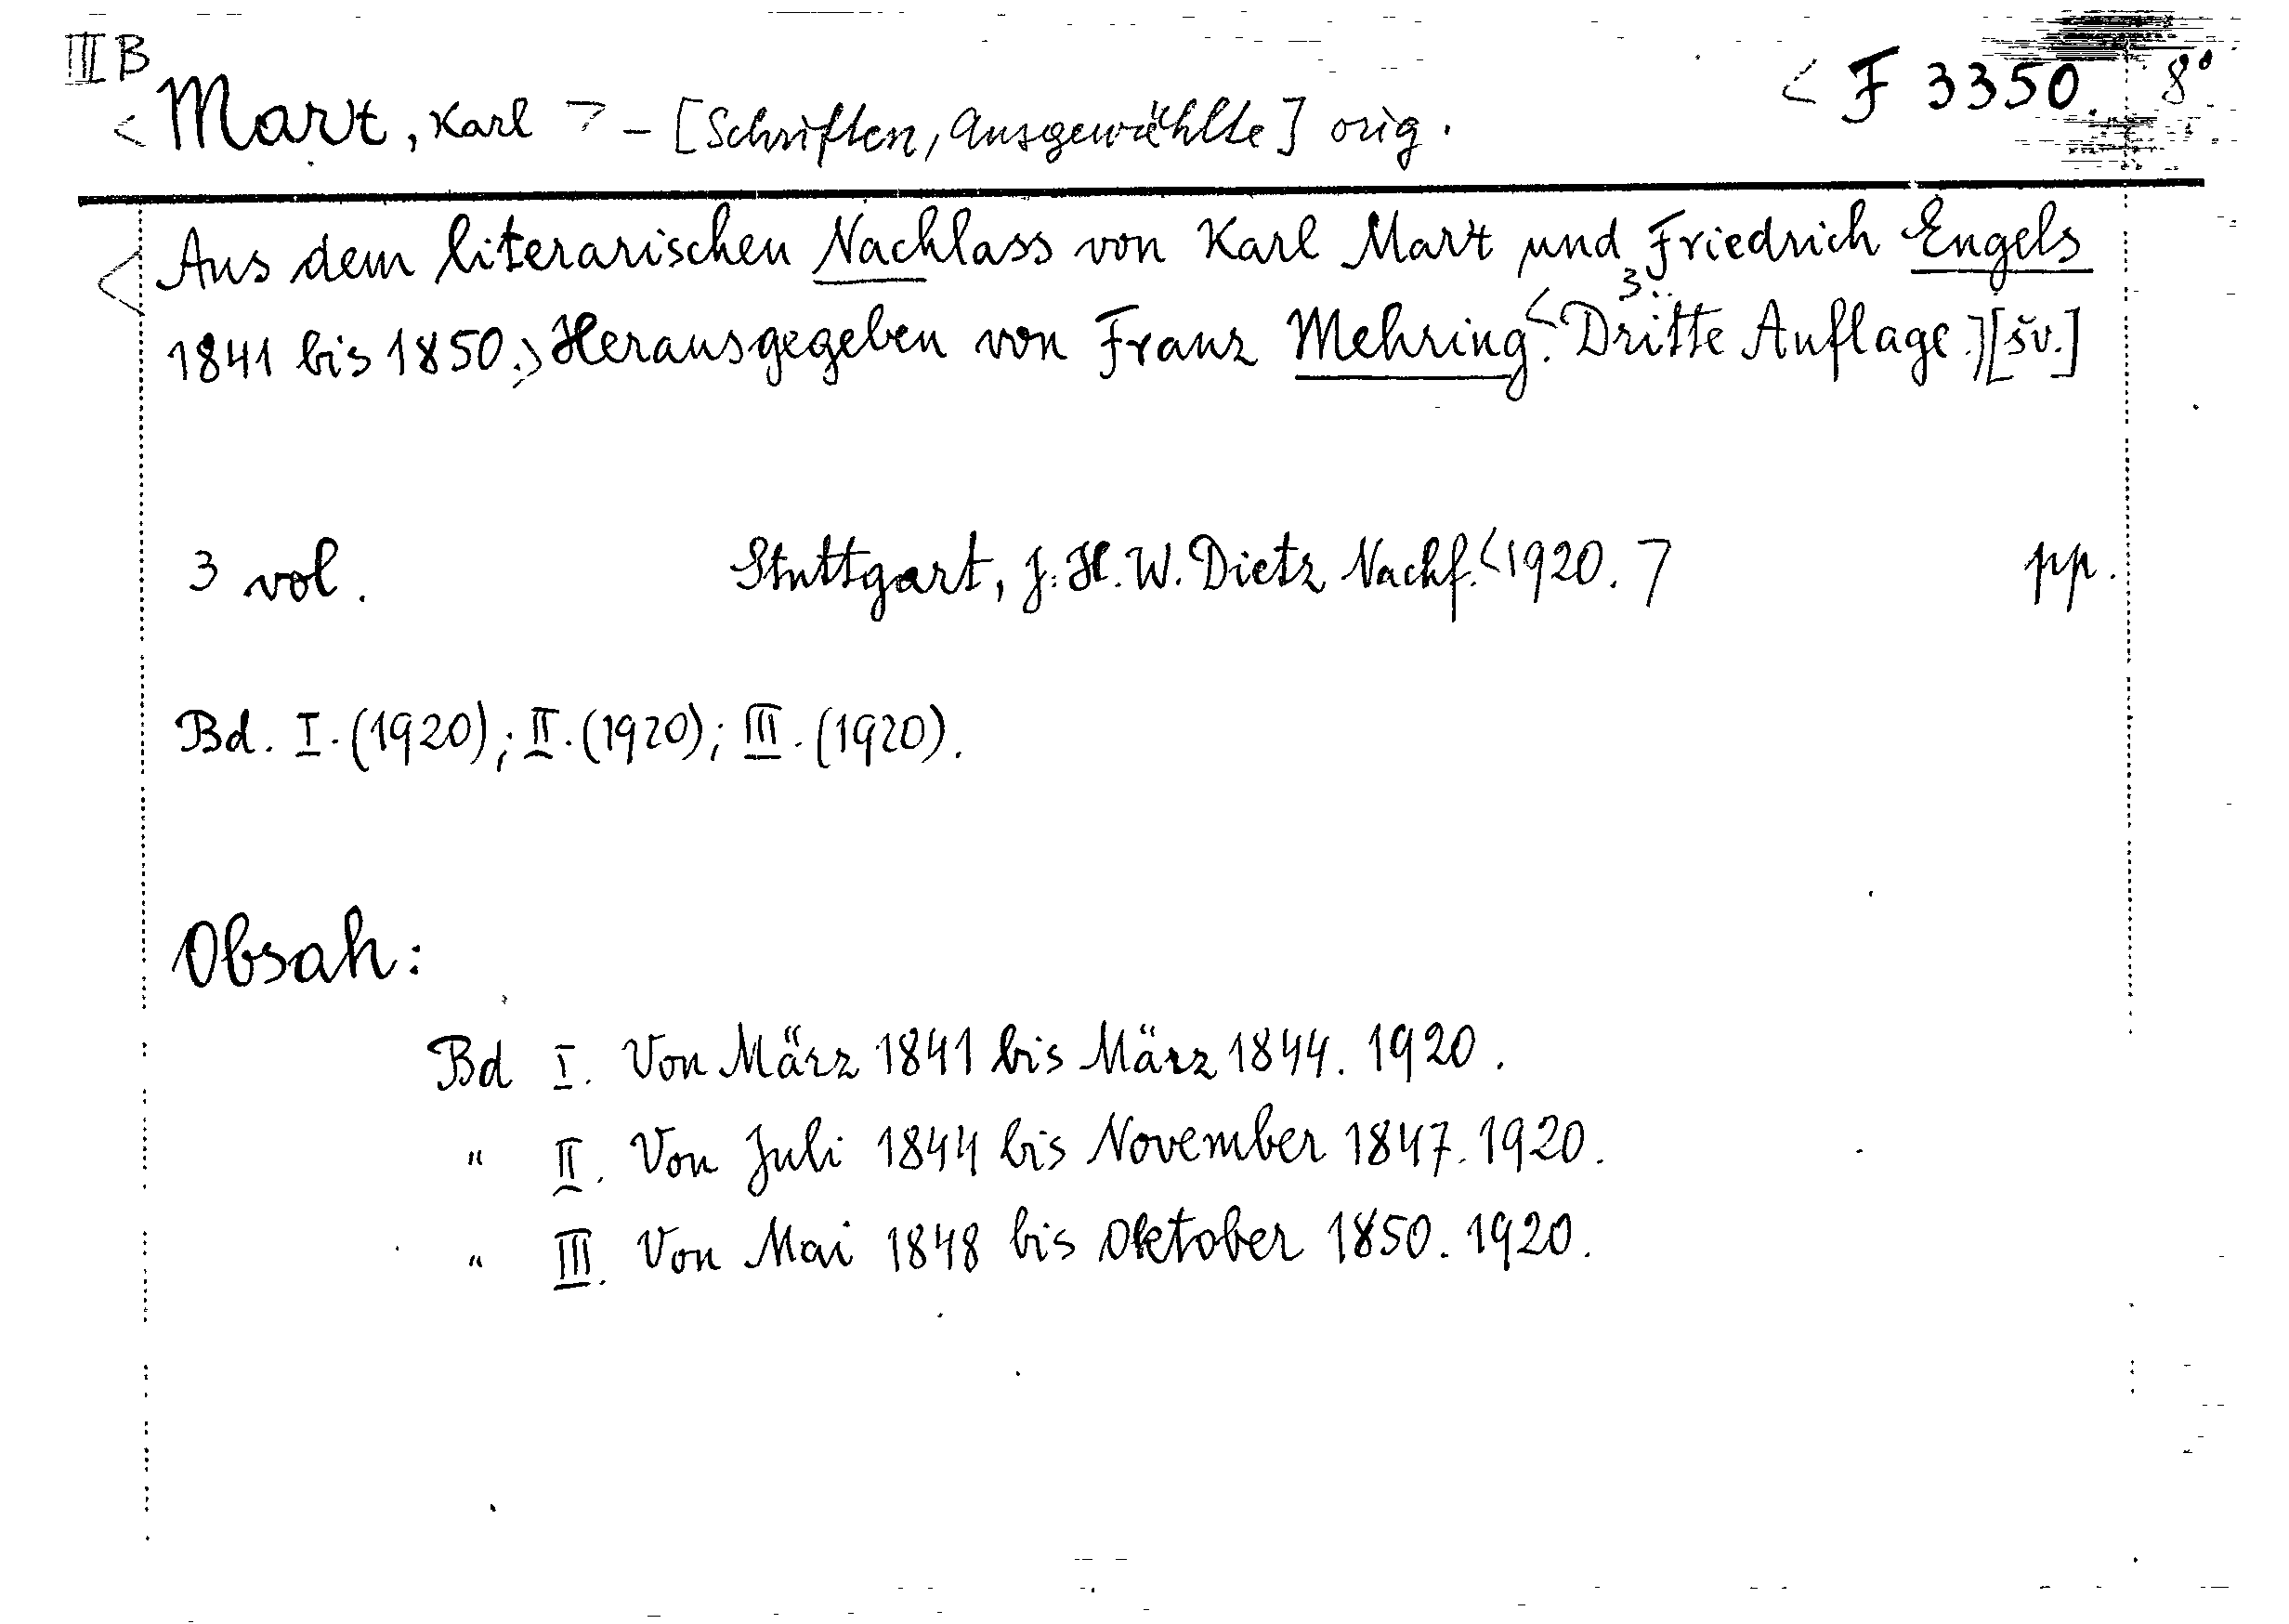 III B
< Marx, Karl > – [Schriften, Ausgewählte] orig. < F 3350. 8°
< Aus dem literarischen Nachlass von Karl Marx und Friedrich Engels
1841 bis 1850.> Herausgegeben von Franz Mehring. < 3.. Dritte Auflage.] [šv.]
3 vol. Stuttgart, J. H. W. Dietz Nachf. < 1920. > pp.
Bd. I. (1920); II. (1920); III. (1920).
Obsah:
Bd I. Von März 1841 bis März 1844. 1920.
" II. Von Juli 1844 bis November 1847. 1920.
" III. Von Mai 1848 bis Oktober 1850. 1920.